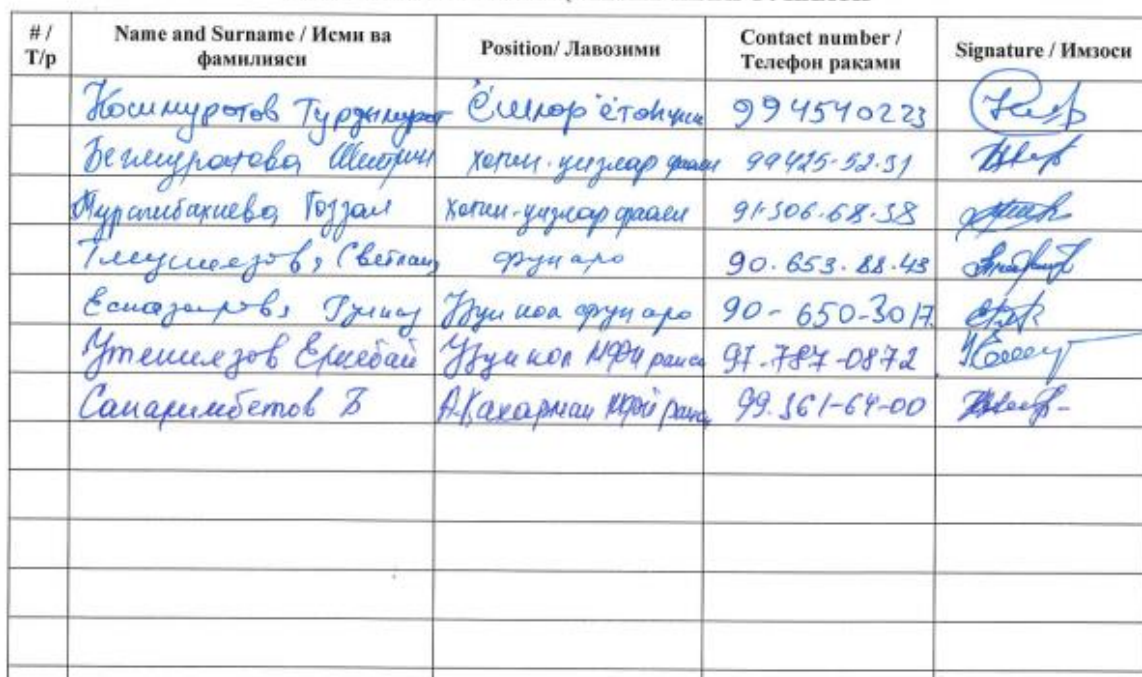 # / Т/р Name and Surname / Исми ва фамилияси Position/ Лавозими Contact number / Телефон раками Signature / Имзоси
Косымуротов Турдымурот 994540223
Бегмуратова хотин-қизлар фаоли 99425-52-31
Гоззал хотин-қизлар фаоли 91-506-68-58
Светлана фуқаро 90.653.88.43
Есназарова Гулназ Узункол фуқаро 90-650-3017
Утениязов Еркебай Узункол МФЙ раиси 97-787-0872
Сапаримбетов Б А.Қахарман МФЙ раиси 99.361-64-00